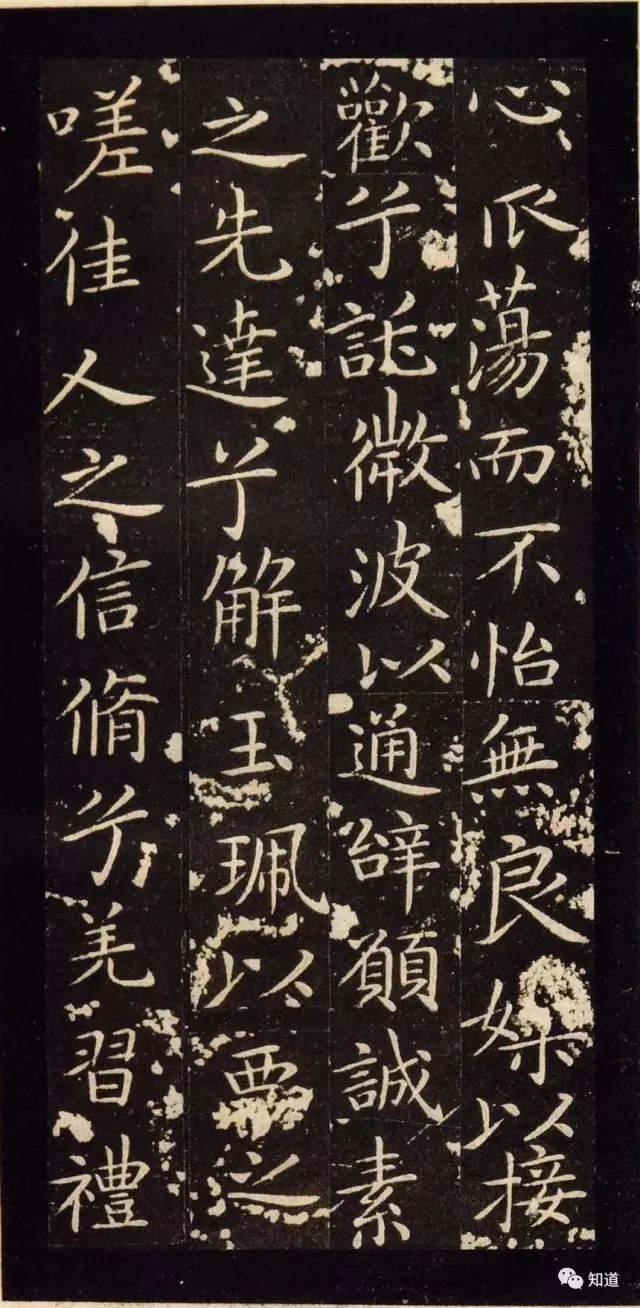 心㲿蕩而不怡無良媒以接
歡兮託微波以通辝願誠素
之先達兮解玉珮以要之
嗟佳人之信脩兮羌習禮
知道